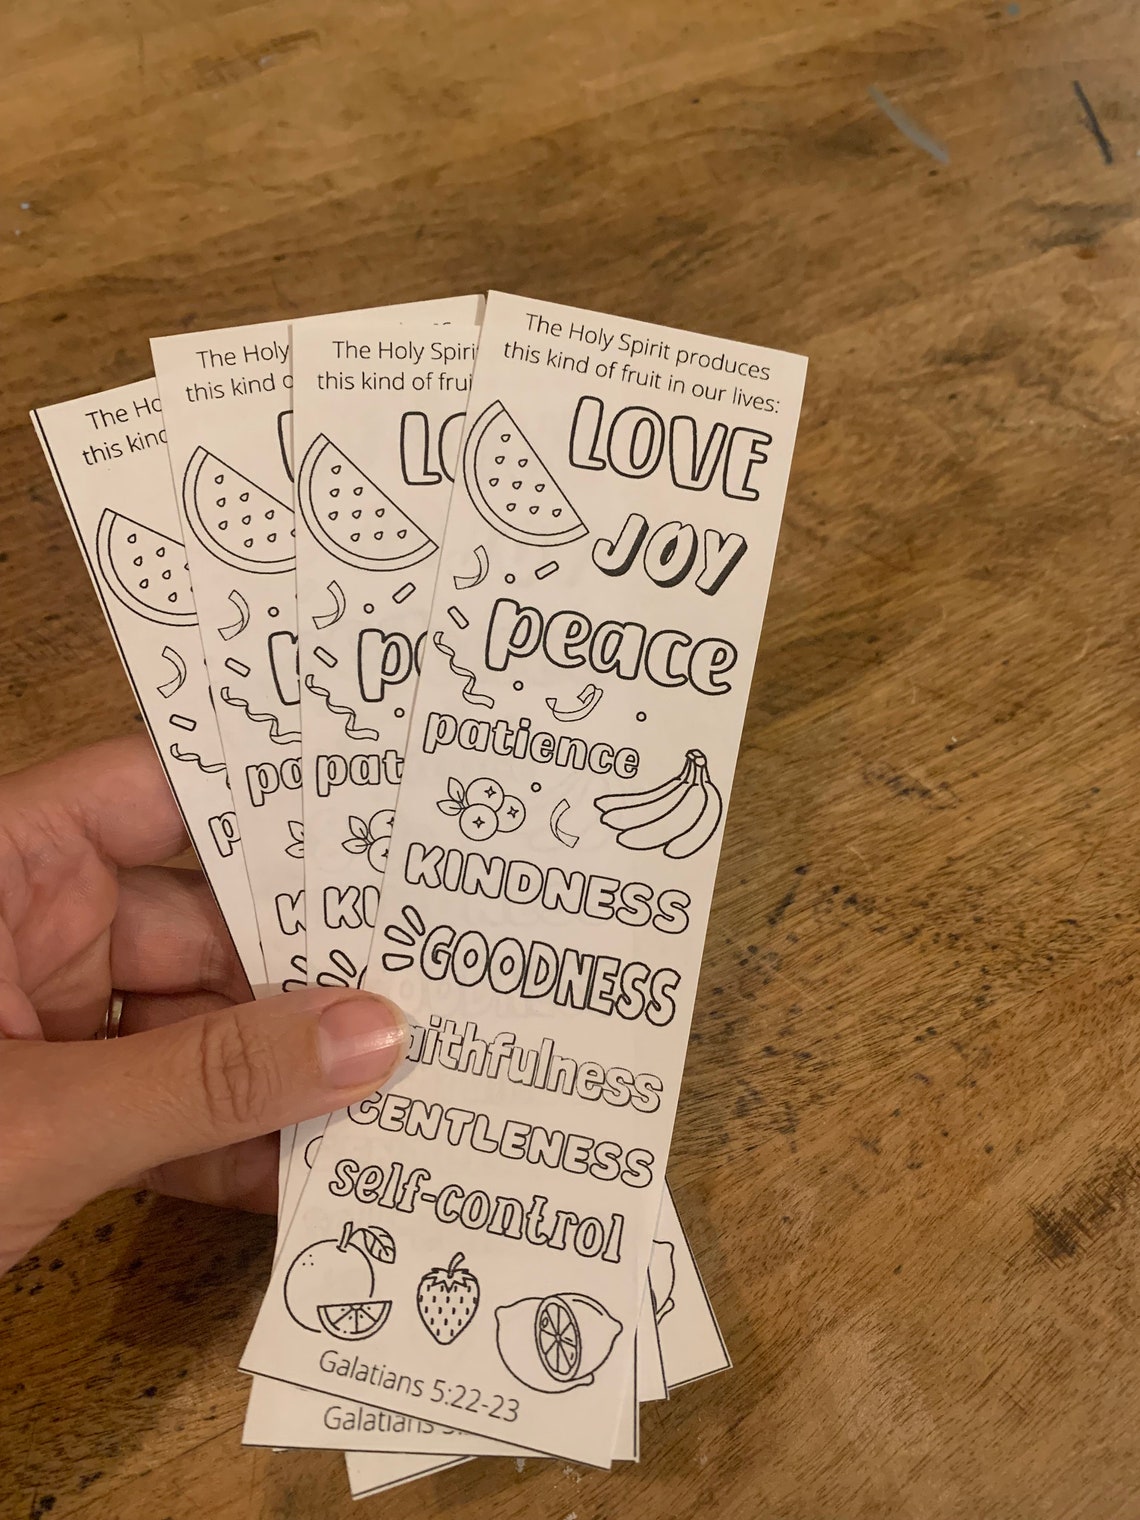 The Holy Spirit produces
this kind of fruit in our lives:
LOVE
JOY
peace
patience
KINDNESS
GOODNESS
faithfulness
GENTLENESS
self-control
Galatians 5:22-23
The Holy Spiri
this kind of frui
LO
pe
pat
KI
The Holy
this kind o
L
p
pa
K
The Ho
this kind
p
Galatians 5: